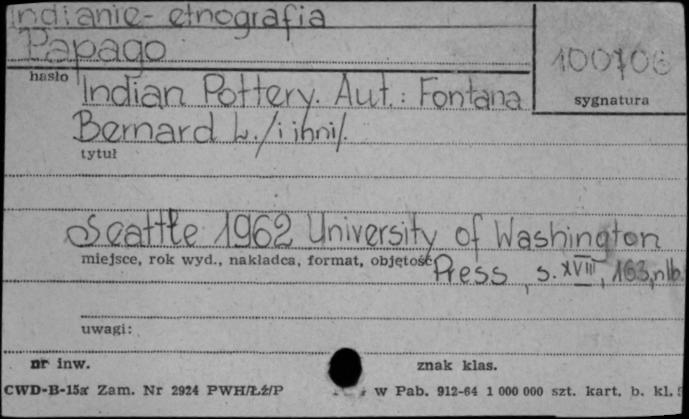 Indianie - etnografia
Papago
100706
hasło
sygnatura
Indian Pottery. Aut.: Fontana
Bernard L. /i inni/.
tytuł
Seattle 1962 University of Washington
miejsce, rok wyd., nakładca, format, objętość
Press, s. XVIII, 163, nlb.
uwagi:
nr inw.
znak klas.
CWD-B-15a Zam. Nr 2924 PWH/Łź/P
w Pab. 912-64 1 000 000 szt. kart. b. kl.